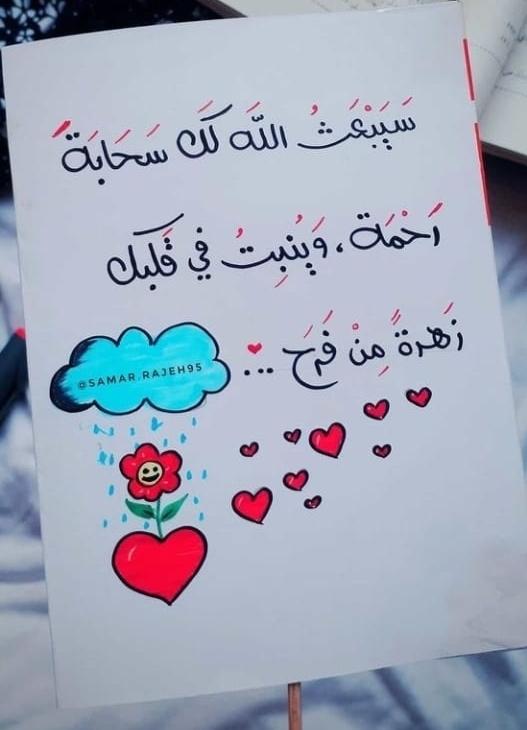 سَيَبْعَثُ اللَّه لَكَ سَحَابَةً
رَحْمَة، وَيُنبِتُ في قَلبك
زَهرةً مِنْ فَرَح ...
@SAMAR.RAJEH95